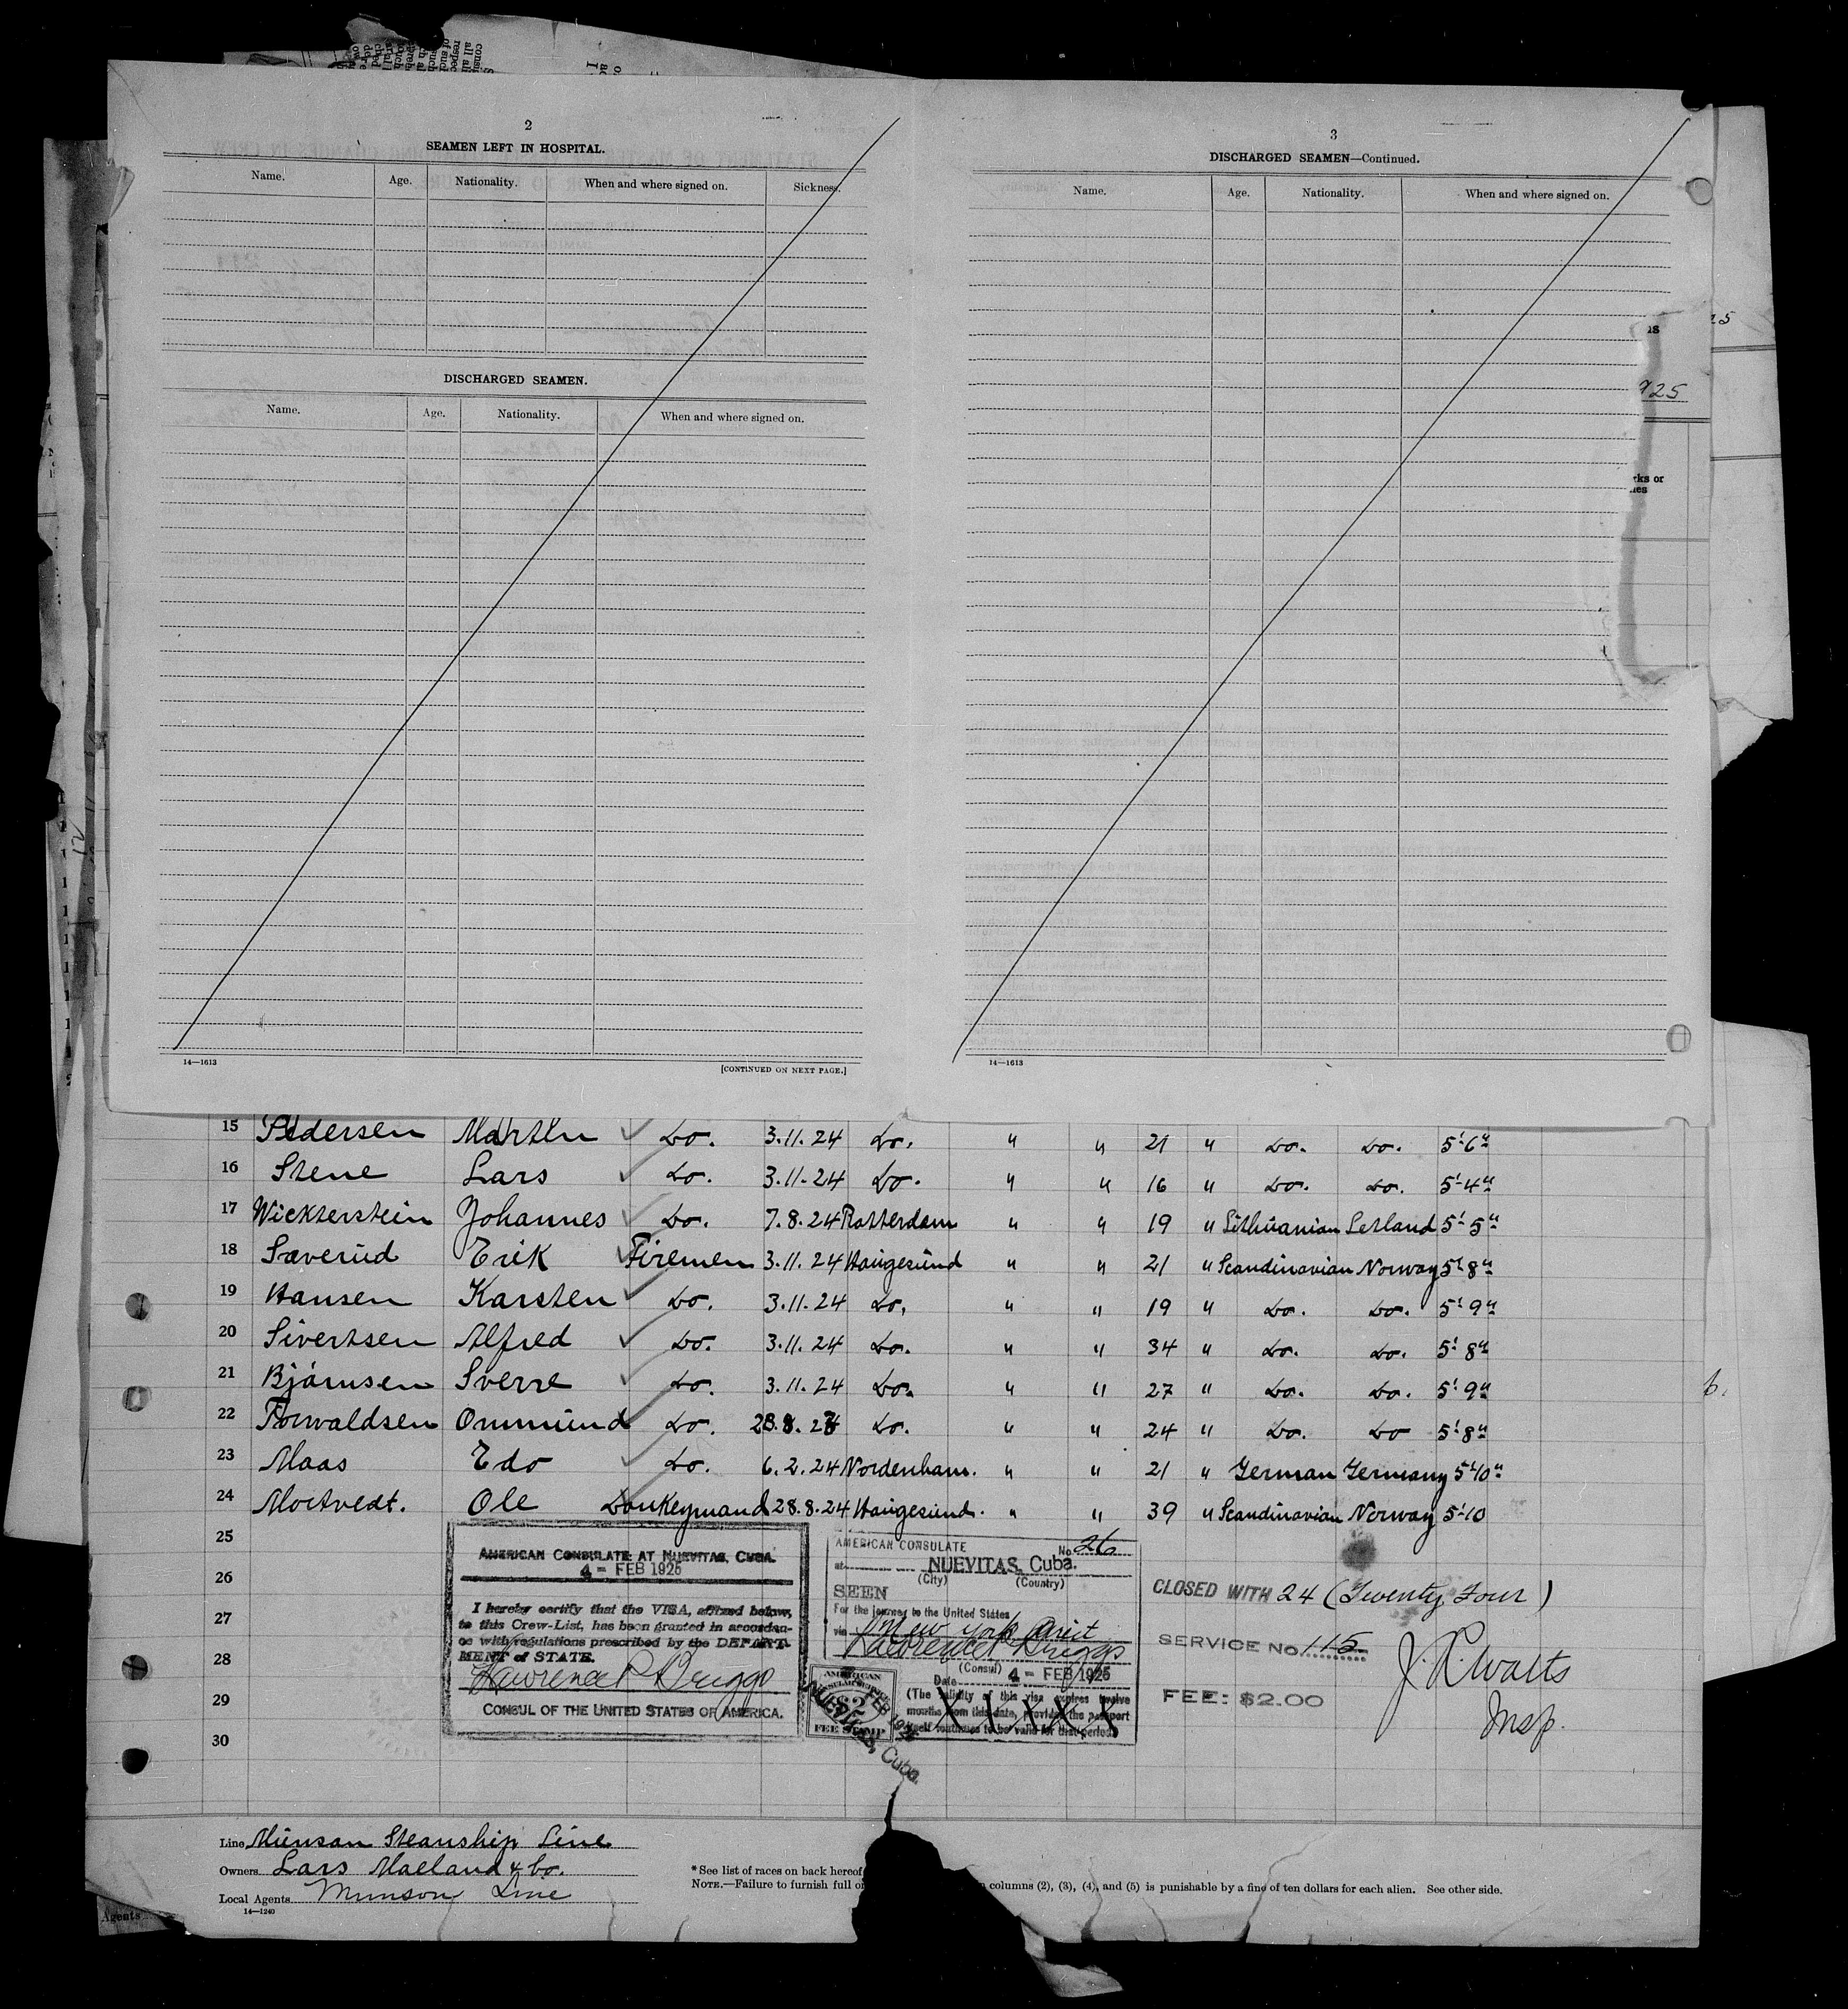 2
SEAMEN LEFT IN HOSPITAL.
Name. Age. Nationality. When and where signed on. Sickness.
DISCHARGED SEAMEN.
Name. Age. Nationality. When and where signed on.
14—1613 [CONTINUED ON NEXT PAGE.]
3
DISCHARGED SEAMEN—Continued.
Name. Age. Nationality. When and where signed on.
14—1613
925
15 Pedersen Martin Do. 3.11.24 Do. " " 21 " Do. Do. 5'-6"
16 Stene Lars Do. 3.11.24 Do. " " 16 " Do. Do. 5'-4"
17 Wickterstein Johannes Do. 7.8.24 Rotterdam " " 19 " Lithuanian Letland 5'-5"
18 Sæverud Erik Firemen 3.11.24 Haugesund " " 21 " Scandinavian Norway 5'8"
19 Hansen Karsten Do. 3.11.24 Do. " " 19 " Do. Do. 5'9"
20 Sivertsen Alfred Do. 3.11.24 Do. " " 34 " Do. Do. 5'8"
21 Bjørnsen Sverre Do. 3.11.24 Do. " " 27 " Do. Do. 5'9"
22 Torvaldsen Ommund Do. Do. " " 24 " Do. Do 5'8"
23 Maas Edo Do. 6.2.24 Nordenham. " " 21 " German Germany 5'10"
24 Mortvedt. Ole Donkeymand 28.8.24 Haugesund. " " 39 " Scandinavian Norway 5'10
25
26
27
28
29
30
AMERICAN CONSULATE AT NUEVITAS, CUBA.
4 - FEB 1925
I hereby certify that the VISA, affixed below,
to this Crew-List, has been granted in accordan-
ce with regulations prescribed by the DEPART-
MENT of STATE.
Lawrence P Briggs
CONSUL OF THE UNITED STATES OF AMERICA.
AMERICAN CONSULATE No. 26
at NUEVITAS, Cuba.
(City) (Country)
SEEN
For the journey to the United States
via New York direct
Lawrence P Briggs
(Consul)
Date 4 - FEB 1925
(The validity of this visa expires twelve
months from this date, provided the passport
itself continues to be valid for that period.)
XXXXXX
AMERICAN
CONSULAR SERVICE
$2
FEE STAMP
NUEVITAS, Cuba.
CLOSED WITH 24 (Twenty Four)
SERVICE No. 115
FEE: $2.00
J. R. Watts
Insp.
Line Munson Steamship Line
Owners Lars Maeland & Co.
Local Agents Munson Line
14—1240
Agents
* See list of races on back hereof
NOTE.—Failure to furnish full
columns (2), (3), (4), and (5) is punishable by a fine of ten dollars for each alien. See other side.